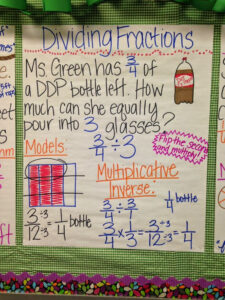 Dividing Fractions
Ms. Green has 3/4 of
a DDP bottle left. How
much can she equally
pour into 3 glasses?
3/4 ÷ 3
Flip the second
and multiply!
Models:
3÷3/12÷3 = 1/4 bottle
Multiplicative
Inverse:
3/4 ÷ 3/1
1/4 bottle
3/4 × 1/3 = 3÷3/12÷3 = 1/4